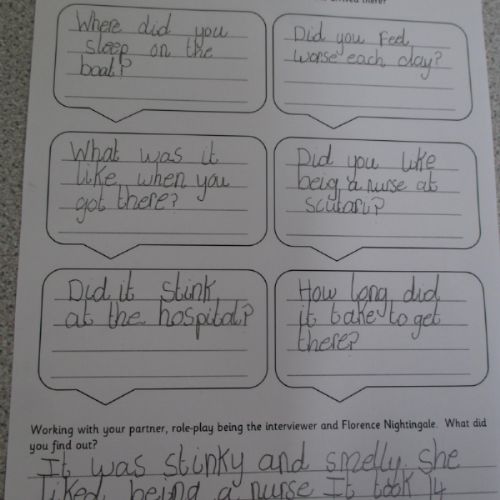 arrived there?
Where did you
sleep on the
boat?
Did you Feel
worse each day?
What was it
like when you
got there?
Did you like
being a nurse at
scutari?
Did it stink
at the hospital?
How long did
it take to get
there?
Working with your partner, role-play being the interviewer and Florence Nightingale. What did
you find out?
It was stinky and smelly she
liked being a nurse It took 14